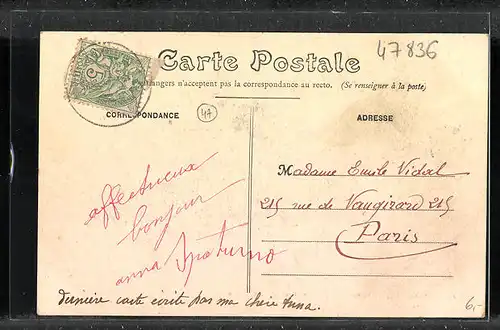 47836
Carte Postale
étrangers n'acceptent pas la correspondance au recto. (Se renseigner à la poste)
CORRESPONDANCE
47
ADRESSE
affectueux
bonjour
anna Spaturno
Madame Emile Vidal
215 rue de Vaugirard 215
Paris
dernière carte écrite pas ma chère Anna.
6,-